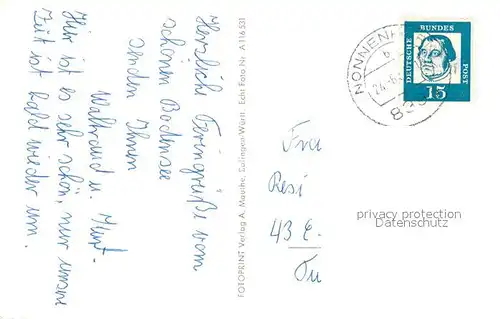 Herzliche Feriengrüße vom
schönen Bodensee
senden Ihnen
Waltraud u. Kurt.
Hier ist es sehr schön, nur unsere
Zeit ist bald wieder um.
FOTOPRINT Verlag A. Mauche, Esslingen-Württ. Echt Foto Nr. A 116 531
NONNENH
b
24.-6.
899
DEUTSCHE
BUNDES
POST
15
Fra
Resi
43 E-
privacy protection
Datenschutz